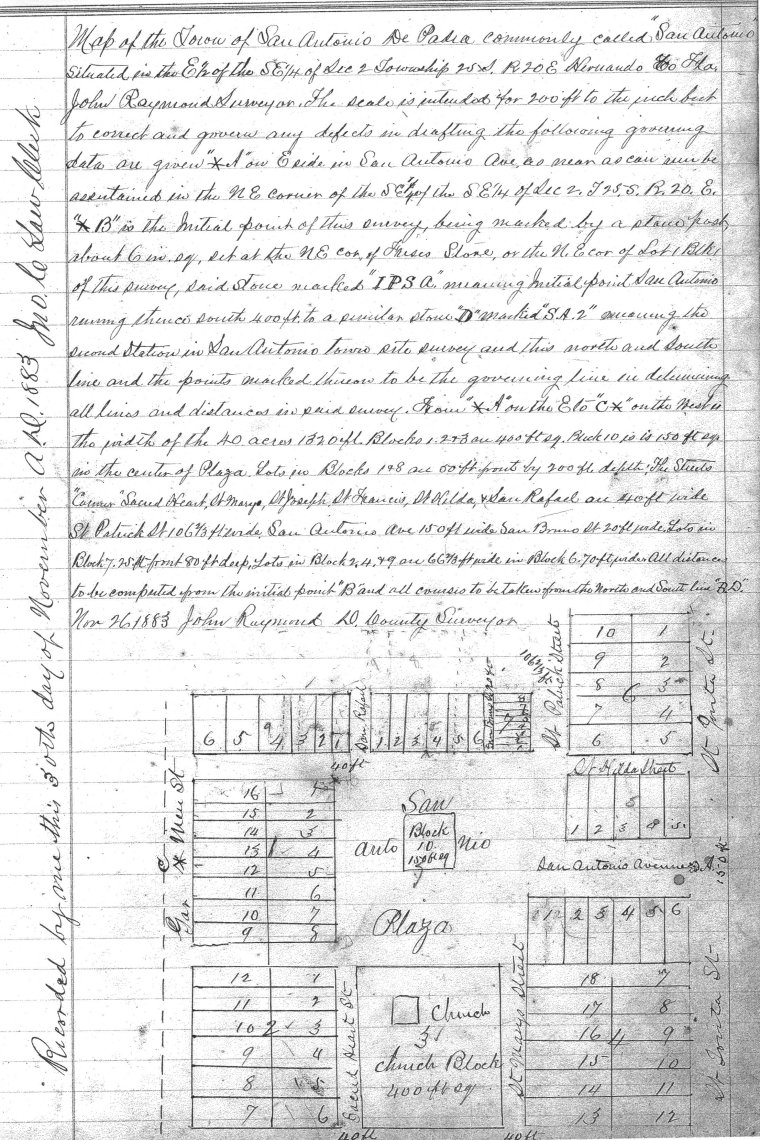 Map of the Town of San Antonio De Padua commonly called "San Antonio"
Situated in the E½ of the SE¼ of Sec 2 Township 25 S. R 20 E Hernando Co Fla.
John Raymond Surveyor. The scale is intended for 200 ft to the inch but
to correct and govern any defects in drafting the following governing
data are given "X A" on E side in San Antonio Ave, as near as can be
assertained in the NE corner of the SE¼ of the SE¼ of Sec 2, T 25 S. R. 20. E.
"X B" is the Initial point of this survey, being marked by a stone post,
about 6 in. sq, set at the NE cor. of Store, or the N.E cor of Lot 1 Blk 1
of this survey, said Stone marked "I P S A" meaning Initial point San Antonio
runing thence south 400 ft to a similar stone "D" marked "S.A. 2" meaning the
second Station in San Antonio town site survey and this north and South
line and the points marked thereon to be the governing line in determining
all lines and distances in said survey. From "X A" on the E to "C X" on the West is
the width of the 40 acres 1320 ft. Blocks 1. 2 & 3 are 400 ft sq. Block 10 is 150 ft sqr
in the center of Plaza. Lots in Blocks 1 & 8 are 50 ft front by 200 ft depth. The Streets
Sacred Heart, St Marys, St Joseph, St Francis, St Hilda, & San Rafael are 40 ft wide
St Patrick St 106⅔ ft wide, San Antonio Ave 150 ft wide San Bruno St 20 ft wide. Lots in
Block 7, 25 ft front 80 ft deep, Lots in Block 2, 4, & 9 are 66⅔ ft wide in Block 6. 70 ft wide. All distances
to be computed from the initial point "B" and all courses to be taken from the North and South line "B.D."
Nov 26 1883 John Raymond D. County Surveyor
Recorded by me this 30th day of November A.D. 1883 Jno. Law Clerk
10 1
9 2
8 3
6
7 4
6 5
St Patrick Street
106⅔ ft
6 5 4 3 2 1
9
San Rafael
40 ft
1 2 3 4 5 6
7
St Hilda Street
5
1 2 3 4 5
San Antonio Avenue
150 ft
16 1
15 2
14 3
13 1 4
12 5
11 6
10 7
9 8
C
X
San
Anto nio
Block
10
150 ft sq
Plaza
1 2 3 4 5 6
12 1
11 2
10 2 3
9 4
8 5
7 6
Sacred Heart St
Church
3
Church Block
400 ft sq
St Marys Street
18 7
17 8
16 4 9
15 10
14 11
13 12
40 ft
40 ft